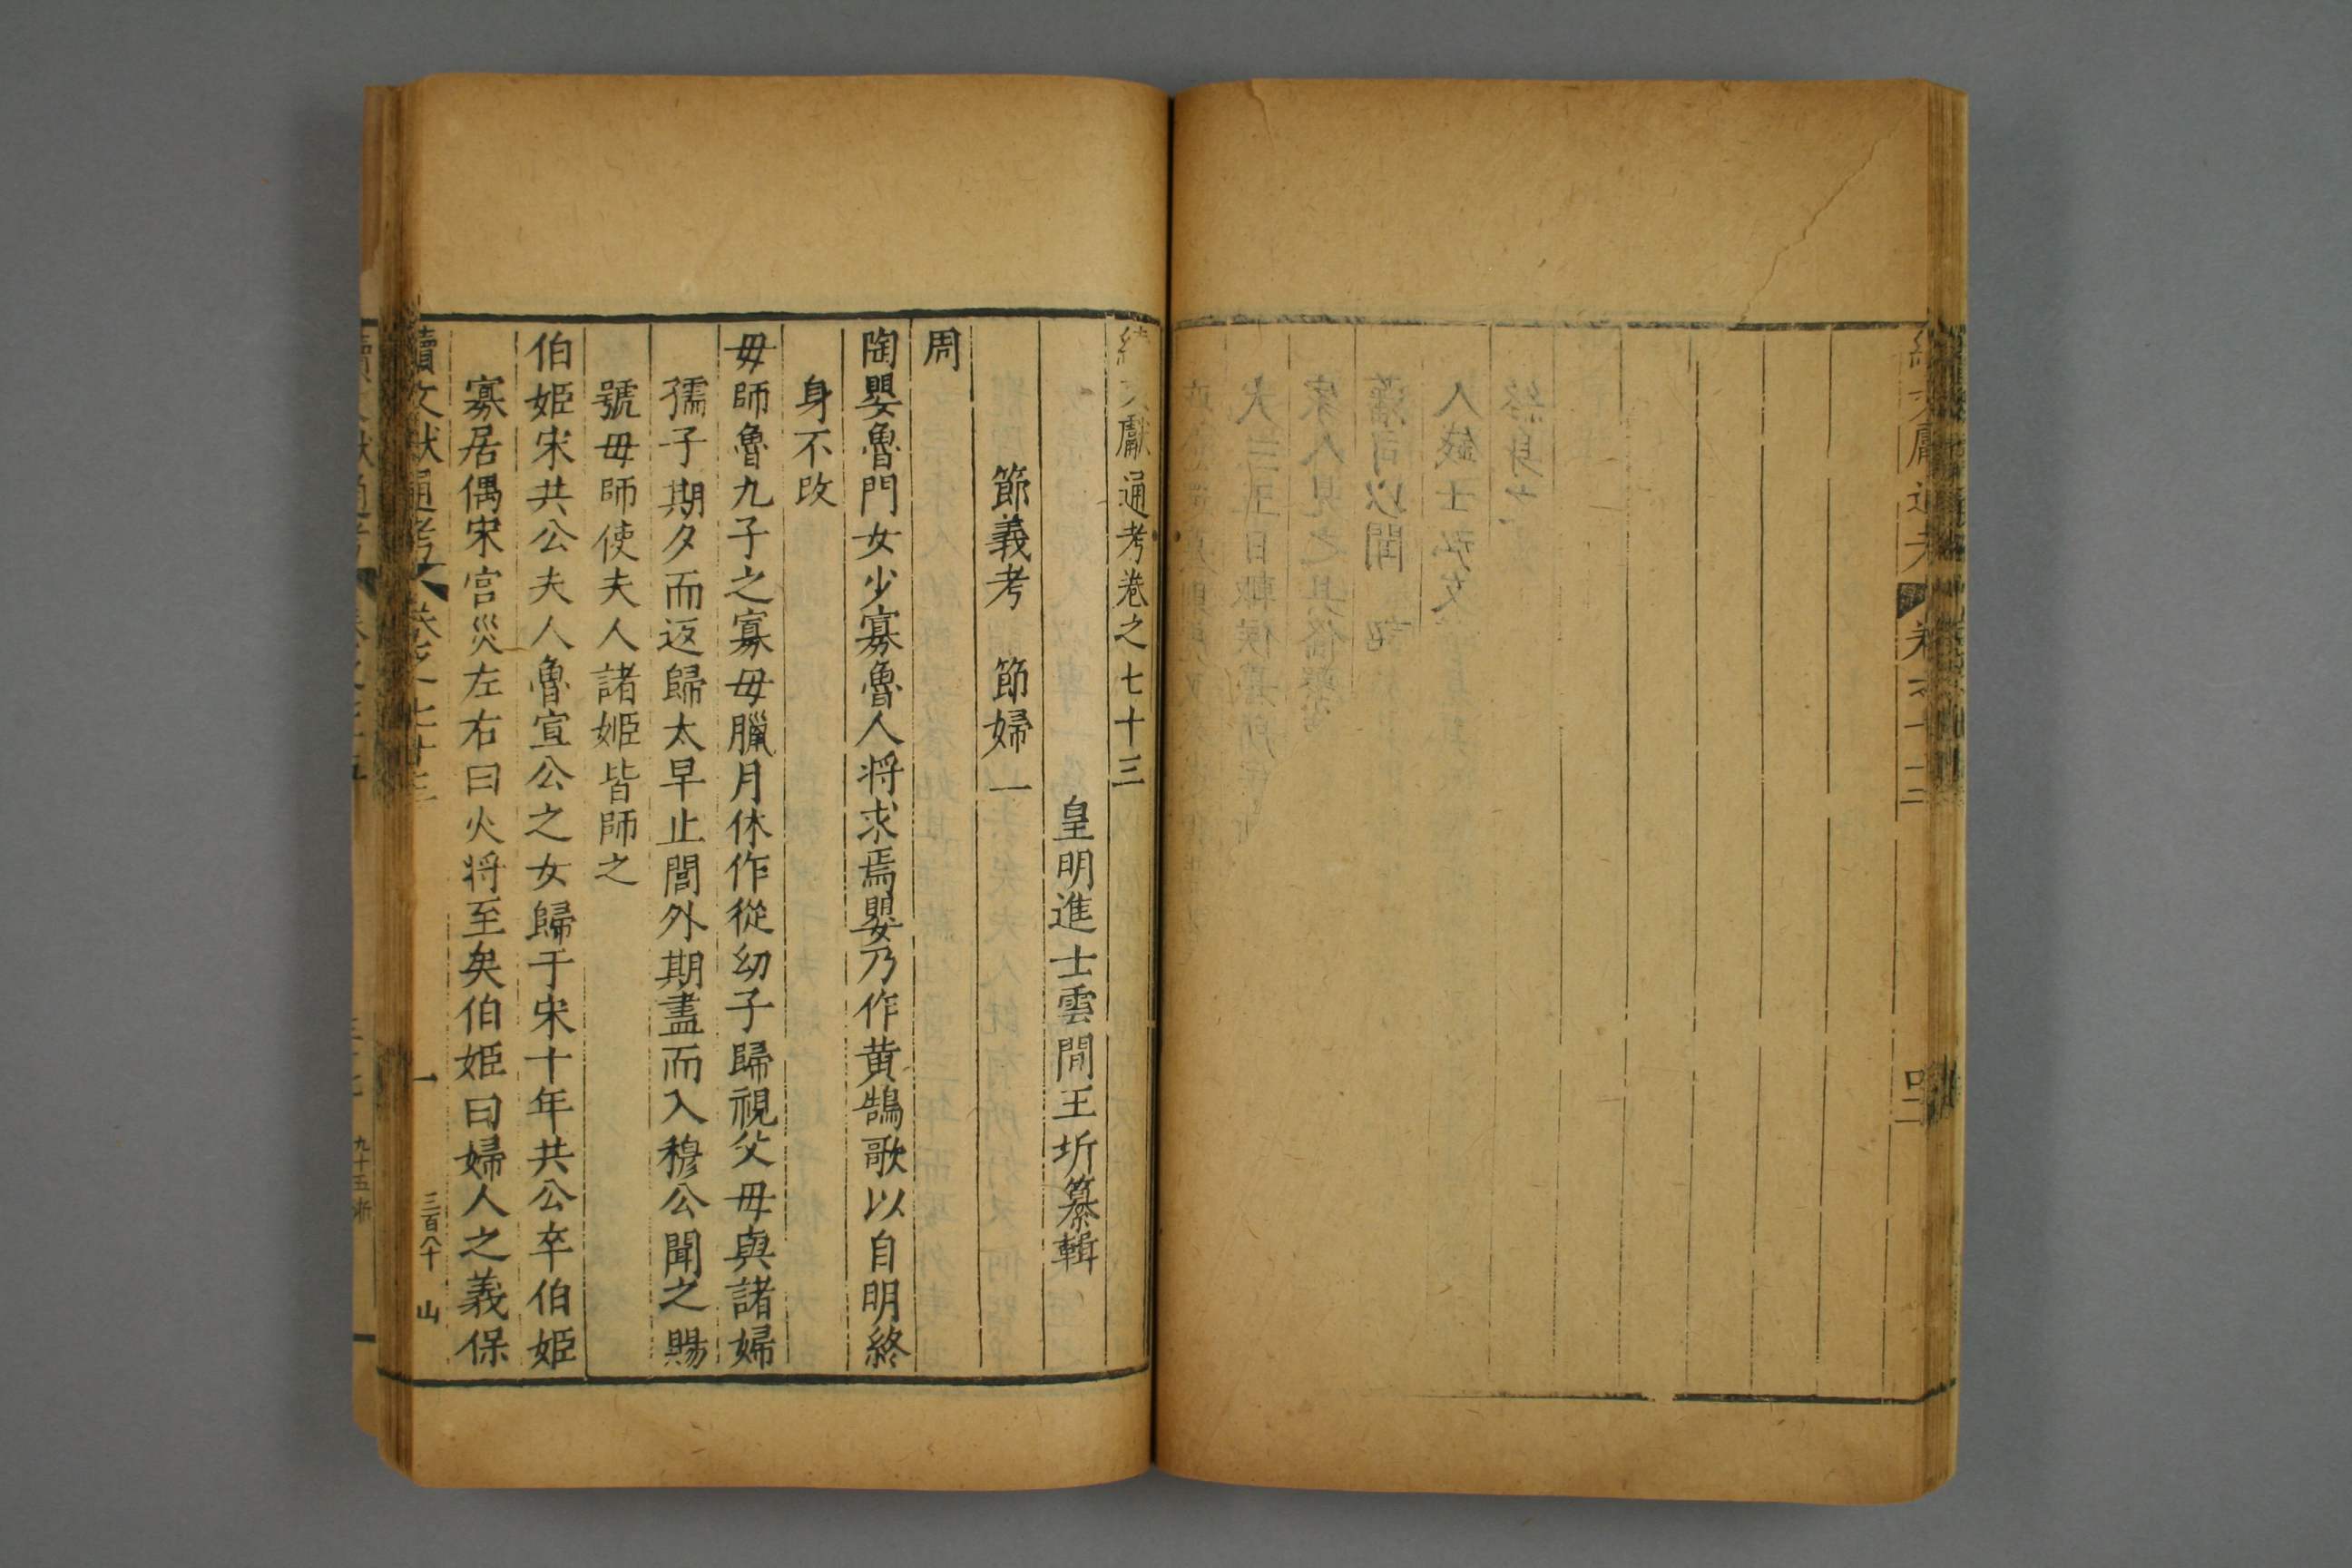 續文獻通考卷之七十三
皇明進士雲間王圻纂輯
節義考 節婦一
周
陶嬰魯門女少寡魯人將求焉嬰乃作黃鵠歌以自明終
身不改
毋師魯九子之寡毋臘月休作從幼子歸視父毋與諸婦
孺子期夕而返歸太早止閭外期盡而入穆公聞之賜
號毋師使夫人諸姬皆師之
伯姬宋共公夫人魯宣公之女歸于宋十年共公卒伯姬
寡居偶宋宮災左右曰火將至矣伯姬曰婦人之義保
續文獻通考 卷之七十三 一 三百八十 山
九十五